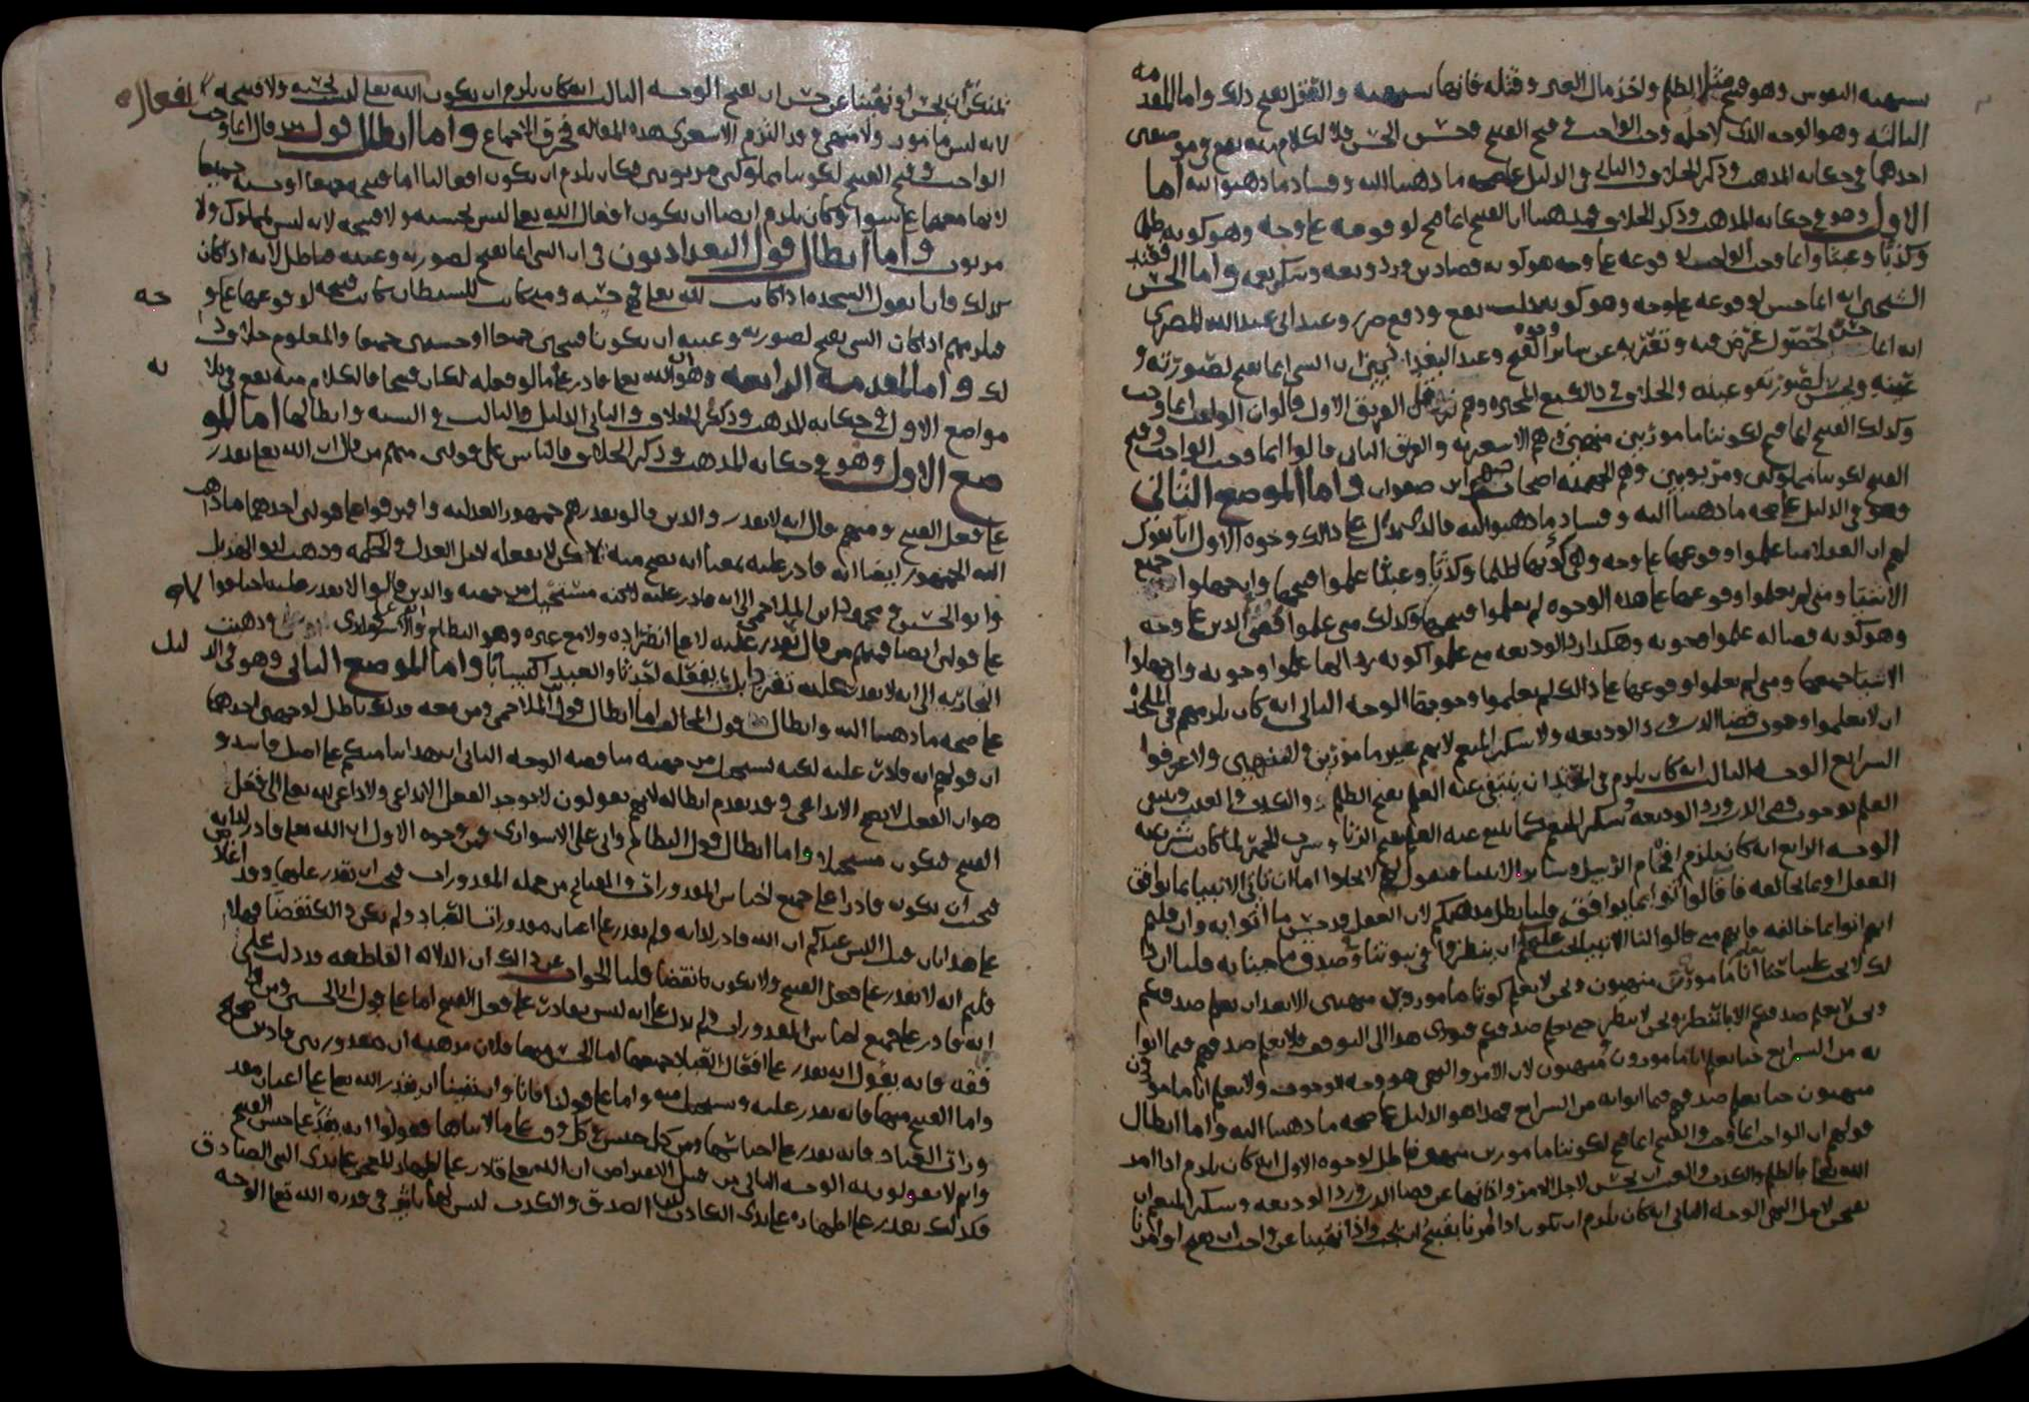 تشتهيه النفوس وهو قبيح مثل الظلم واخذ مال الغير وقتله فانها تشتهيه والعقل يقبح ذلك واما المقدمه
الثالثه وهو الوجه الذي لاجله وجب الواجب وقبح القبيح وحسن الحسن فالكلام منه يقع في موضعين
احدهما في حكايه المذهب وذكر الخلاف والثاني في الدليل على صحه ما ذهبنا اليه وفساد ما ذهبوا اليه اما
الاول وهو في حكايه المذهب وذكر الخلاف فمذهبنا ان القبيح انما قبح لوقوعه على وجه وهو كونه ظلما
وكذبا وعبثا وانما وجب الواجب لوقوعه على وجه هو كونه قضا دين ورد وديعه وشكر نعمه واما الحسن
الشيخين انه انما حسن لوقوعه على وجه وهو كونه جلب نفع ودفع ضرر وعند ابي عبدالله البصري
انه انما حسن لحصول غرض فيه وتعريه عن سائر وجوه القبح وعند البغداديين ان الشي انما يقبح لصورته و
عينه ويحسن لصورته وعينه والخلاف في ذلك مع المجبره وهم الفريق الاول قالوا ان الواجب انما وجب
وكذلك القبيح انما قبح لكوننا مامورين منهيين وهم الاشعريه والفريق الثاني قالوا انما وجب الواجب وقبح
القبيح لكوننا مملوكين ومربوبين وهم الجهميه اصحاب جهم ابن صفوان واما الموضع الثاني
وهو في الدليل على صحه ما ذهبنا اليه وفساد ما ذهبوا اليه فالذي يدل على ذلك وجوه الاول انا نقول
لهم ان العقلا متى علموا وقوعها على وجه وهي كونها ظلما وكذبا وعبثا علموا قبحها وان جهلوا جميع
الاشيا ومتى لم يعلموا وقوعها على هذه الوجوه لم يعلموا قبحها وكذلك متى علموا قضى الدين على وجه
وهو كونه قضا له علموا وجوبه وهكذا رد الوديعه متى علموا كونه ردا لها علموا وجوبه وان جهلوا
الاشيا جميعها ومتى لم يعلموا وقوعها على ذلك لم يعلموا وجوبها الوجه الثاني انه كان يلزمهم في الملحده
ان لا يعلموا وجوب قضا الدين ورد الوديعه ولا شكر المنعم لانهم غير مامورين ولا منهيين ولا عرفوا
الشرايع الوجه الثالث انه كان يلزم في الملحد ان ينتفي عنه العلم بقبح الظلم والكذب والعبث وينتفي
العلم بوجوب قضى الدين ورد الوديعه وشكر المنعم كما ينتفي عنه العلم بقبح الزنا وشرب الخمر لما كانت شرعيه
الوجه الرابع انه كان يلزم افحام الرسل وسائر الانبيا فنقول لهم لا يخلوا اما ان تاتي الانبيا بما يوافق
العقل او بما يخالفه فان قالوا اتوا بما يوافق قلنا بطل مذهبكم لان العقل قد حسن ما اتوا به وان قلتم
انهم اتوا بما يخالفه فانهم متى قالوا لنا الانبيا يجب عليكم ان ينظروا في نبوتنا وصدق ما جينا به قلنا ان ذ
لك لا يجب علينا حتى نعلم انا مامورين منهيين ونحن لا نعلم كوننا مامورين منهيين الا بعد ان نعلم صدقكم
ونحن لا نعلم صدقكم الا بالنظر ونحن لا ننظر حتى نعلم صدقكم فيودي هذا الى التوقف فلا نعلم صدقهم فيما اتوا
به من الشرايع حتى نعلم انا مامورون منهيون لان الامر والنهي هو وجه الوجوب ولا نعلم انا مامورون
منهيون حتى نعلم صدقهم فيما اتوا به من الشرايع فهذا هو الدليل على صحه ما ذهبنا اليه واما ابطال
قولهم ان الواجب انما وجب والقبيح انما قبح لكوننا مامورين منهيين فباطل لوجوه الاول انه كان يلزم اذا امر
الله تعالى بالظلم والكذب والعبث ان يحسن لاجل الامر واذا نهانا عن قضا الدين ورد الوديعه وشكر المنعم ان
يقبح لاجل النهي الوجه الثاني انه كان يلزم ان نكون اذا امرنا بقبيح ان يجب واذا نهينا عن واجب ان يقبح او امرنا
بمنكر ان يحسن او نهينا عن حسن ان يقبح الوجه الثالث انه كان يلزم ان يكون افعال الله تعالى ليس بحسنه ولا قبيحه
لانه ليس مامور ولا منهي وقد التزم الاشعري هذه المقاله فخرق الاجماع واما ابطال قول من قال انما وجب
الواجب وقبح القبيح لكوننا مملوكين مربوبين فكان يلزم ان يكون افعالنا اما قبيحه جميعها او حسنه جميعها
لانها معهما على سوا وكان يلزم ايضا ان يكون افعال الله تعالى ليس بحسنه ولا قبيحه لانه ليس بمملوك ولا
مربوب واما ابطال قول البغداديون في ان الشي انما يقبح لصورته وعينه فباطل لانه اذا كان
كذلك فانا نقول السجده اذا كانت لله تعالى فهي حسنه ومتى كانت للشيطان كانت قبيحه لوقوعها على وجه
فيلزمهم اذا كان الشي يقبح لصورته وعينه ان يكونا قبيحين جميعا او حسنين جميعا والمعلوم خلاف ذ
لك واما المقدمه الرابعه وهو ان الله تعالى قادر على ما لو فعله لكان قبيحا فالكلام منه يقع في ثلاثه
مواضع الاول في حكايه المذهب وذكر الخلاف والثاني الدليل والثالث في الشبه وابطالها اما المو
ضع الاول وهو في حكايه المذهب وذكر الخلاف فالناس على قولين منهم من قال ان الله تعالى يقدر
على فعل القبيح ومنهم قال انه لا يقدر والذين قالو يقدر هم جمهور العدليه وافترقوا على قولين احدهما ما ذهب
اليه الجمهور ايضا انه قادر عليه بمعنا انه يصح منه لكن لا يفعله لاجل العدل والحكمه وذهب ابو الهذيل
وابو الحسين ومحمود ابن الملاحمي الى انه قادر عليه لكنه مستحيل من جهته والذين قالوا لا يقدر عليه اختلفوا
على قولين ايضا فمنهم من قال لا يقدر عليه لا على انفراده ولا مع غيره وهو النظام وابو علي الاسواري وذهبت
النجاريه الى انه لا يقدر عليه تفردا بل يفعله احداثا والعبد اكتسابا واما الموضع الثاني وهو في الدليل
على صحه ما ذهبنا اليه وابطال قول المخالف اما ابطال قول ابن الملاحمي ومن معه فذلك باطل لوجهين احدهما
ان قولهم انه قادر عليه لكنه يستحيل من جهته مناقضه الوجه الثاني ان هذا بنا منكم على اصل فاسد و
هو ان الفعل لا يصح الا بداعي وقد تقدم ابطاله لانهم يقولون لا يوجد الفعل الا بداعي ولا داعي لله تعالى الى فعل
القبيح فيكون مستحيلا واما ابطال قول النظام وابي علي الاسواري فمن وجوه الاول ان الله تعالى قادر لذاته
فيجب ان يكون قادرا على جميع اجناس المقدورات والقبائح من جمله المقدورات فيجب ان يقدر عليها
على هذا بان قيل اليس عندكم ان الله قادر لذاته ولم يقدر على اعيان مقدورات العباد ولم يكن ذلك نقضا فهلا
قلتم انه لا يقدر على فعل القبيح ولا يكون نقضا قلنا الجواب عن ذلك ان الدلاله القاطعه قد دلت على
انه قادر على جميع اجناس المقدورات ولم يدل على انه ليس بقادر على فعل القبيح اما على قول ابي الحسين ومن وا
فقه فانه يقول انه يقدر على افعال العباد جميعها اما الحسن منها فلان مذهبه ان مقدور بين قادرين صحيح
واما القبيح منها فانه يقدر عليه ويستحيل منه واما على قولنا فانا وان نفينا ان يقدر الله تعالى على اعيان مقد
ورات العباد فانه يقدر على اجناسها ومن كل جنس في كل وقت على ما لا يتناها فقولوا انه يقدر على جنس القبيح
وانتم لا تقولون به الوجه الثاني من قبيل الاعتراض ان الله تعالى قادر على اظهار المعجز على يدي النبي الصادق
فكذلك يقدر على اظهاره على يدي الكاذب لان الصدق والكذب ليس لهما تاثير في قدره الله تعالى الوجه